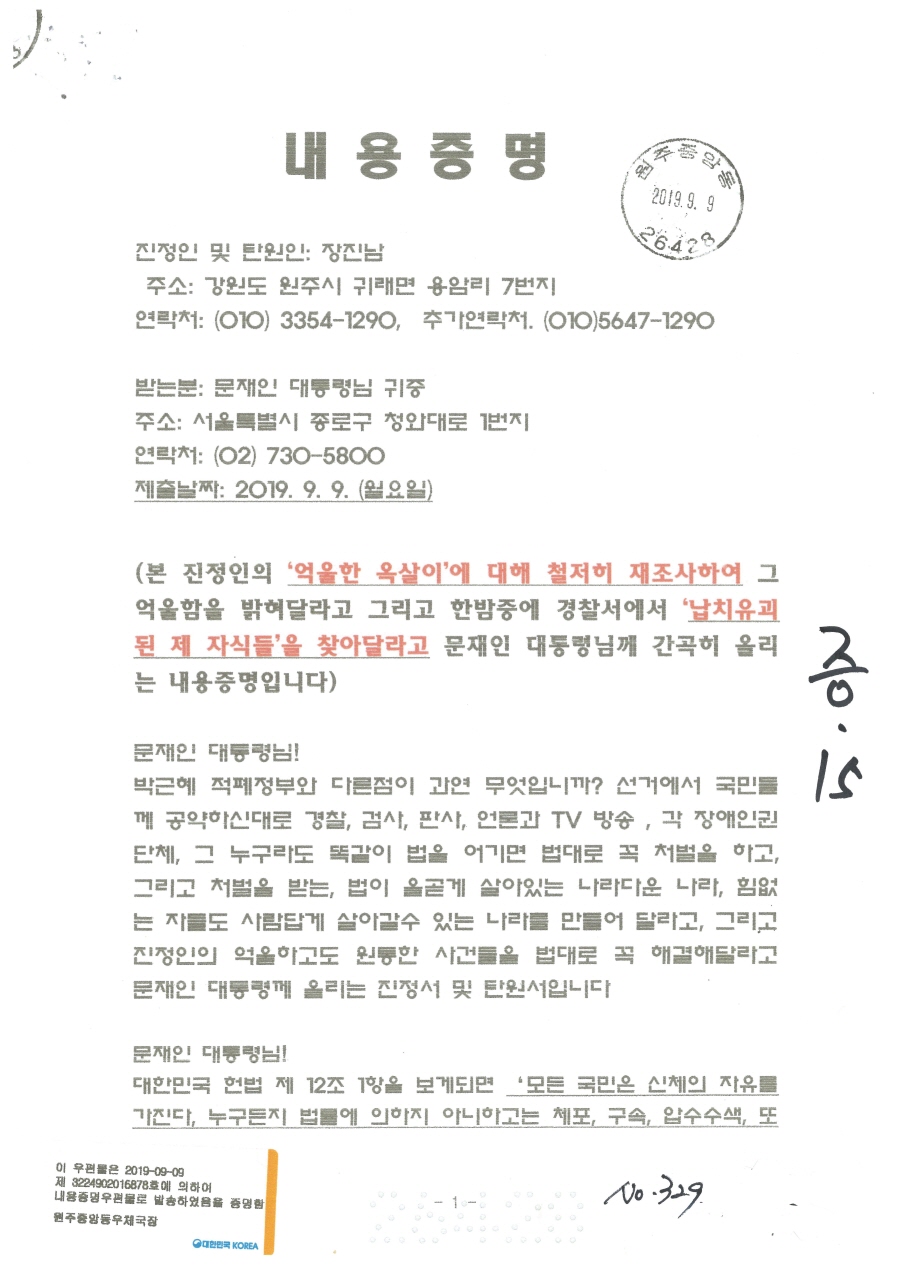 내 용 증 명
원주중앙동
2019. 9. 9
26428
진정인 및 탄원인: 장진남
주소: 강원도 원주시 귀래면 용암리 7번지
연락처: (010) 3354-1290, 추가연락처. (010)5647-1290
받는분: 문재인 대통령님 귀중
주소: 서울특별시 종로구 청와대로 1번지
연락처: (02) 730-5800
제출날짜: 2019. 9. 9. (월요일)
(본 진정인의 '억울한 옥살이'에 대해 철저히 재조사하여 그
억울함을 밝혀달라고 그리고 한밤중에 경찰서에서 '납치유괴
된 제 자식들'을 찾아달라고 문재인 대통령님께 간곡히 올리
는 내용증명입니다)
증. 15
문재인 대통령님!
박근혜 적폐정부와 다른점이 과연 무엇입니까? 선거에서 국민들
께 공약하신대로 경찰, 검사, 판사, 언론과 TV 방송 , 각 장애인권
단체, 그 누구라도 똑같이 법을 어기면 법대로 꼭 처벌을 하고,
그리고 처벌을 받는, 법이 올곧게 살아있는 나라다운 나라, 힘없
는 자들도 사람답게 살아갈수 있는 나라를 만들어 달라고, 그리고
진정인의 억울하고도 원통한 사건들을 법대로 꼭 해결해달라고
문재인 대통령께 올리는 진정서 및 탄원서입니다
문재인 대통령님!
대한민국 헌법 제 12조 1항을 보게되면 '모든 국민은 신체의 자유를
가진다, 누구든지 법률에 의하지 아니하고는 체포, 구속, 압수수색, 또
이 우편물은 2019-09-09
제 3224902016878호에 의하여
내용증명우편물로 발송하였음을 증명함
원주중앙동우체국장
대한민국 KOREA
- 1 -
No. 329